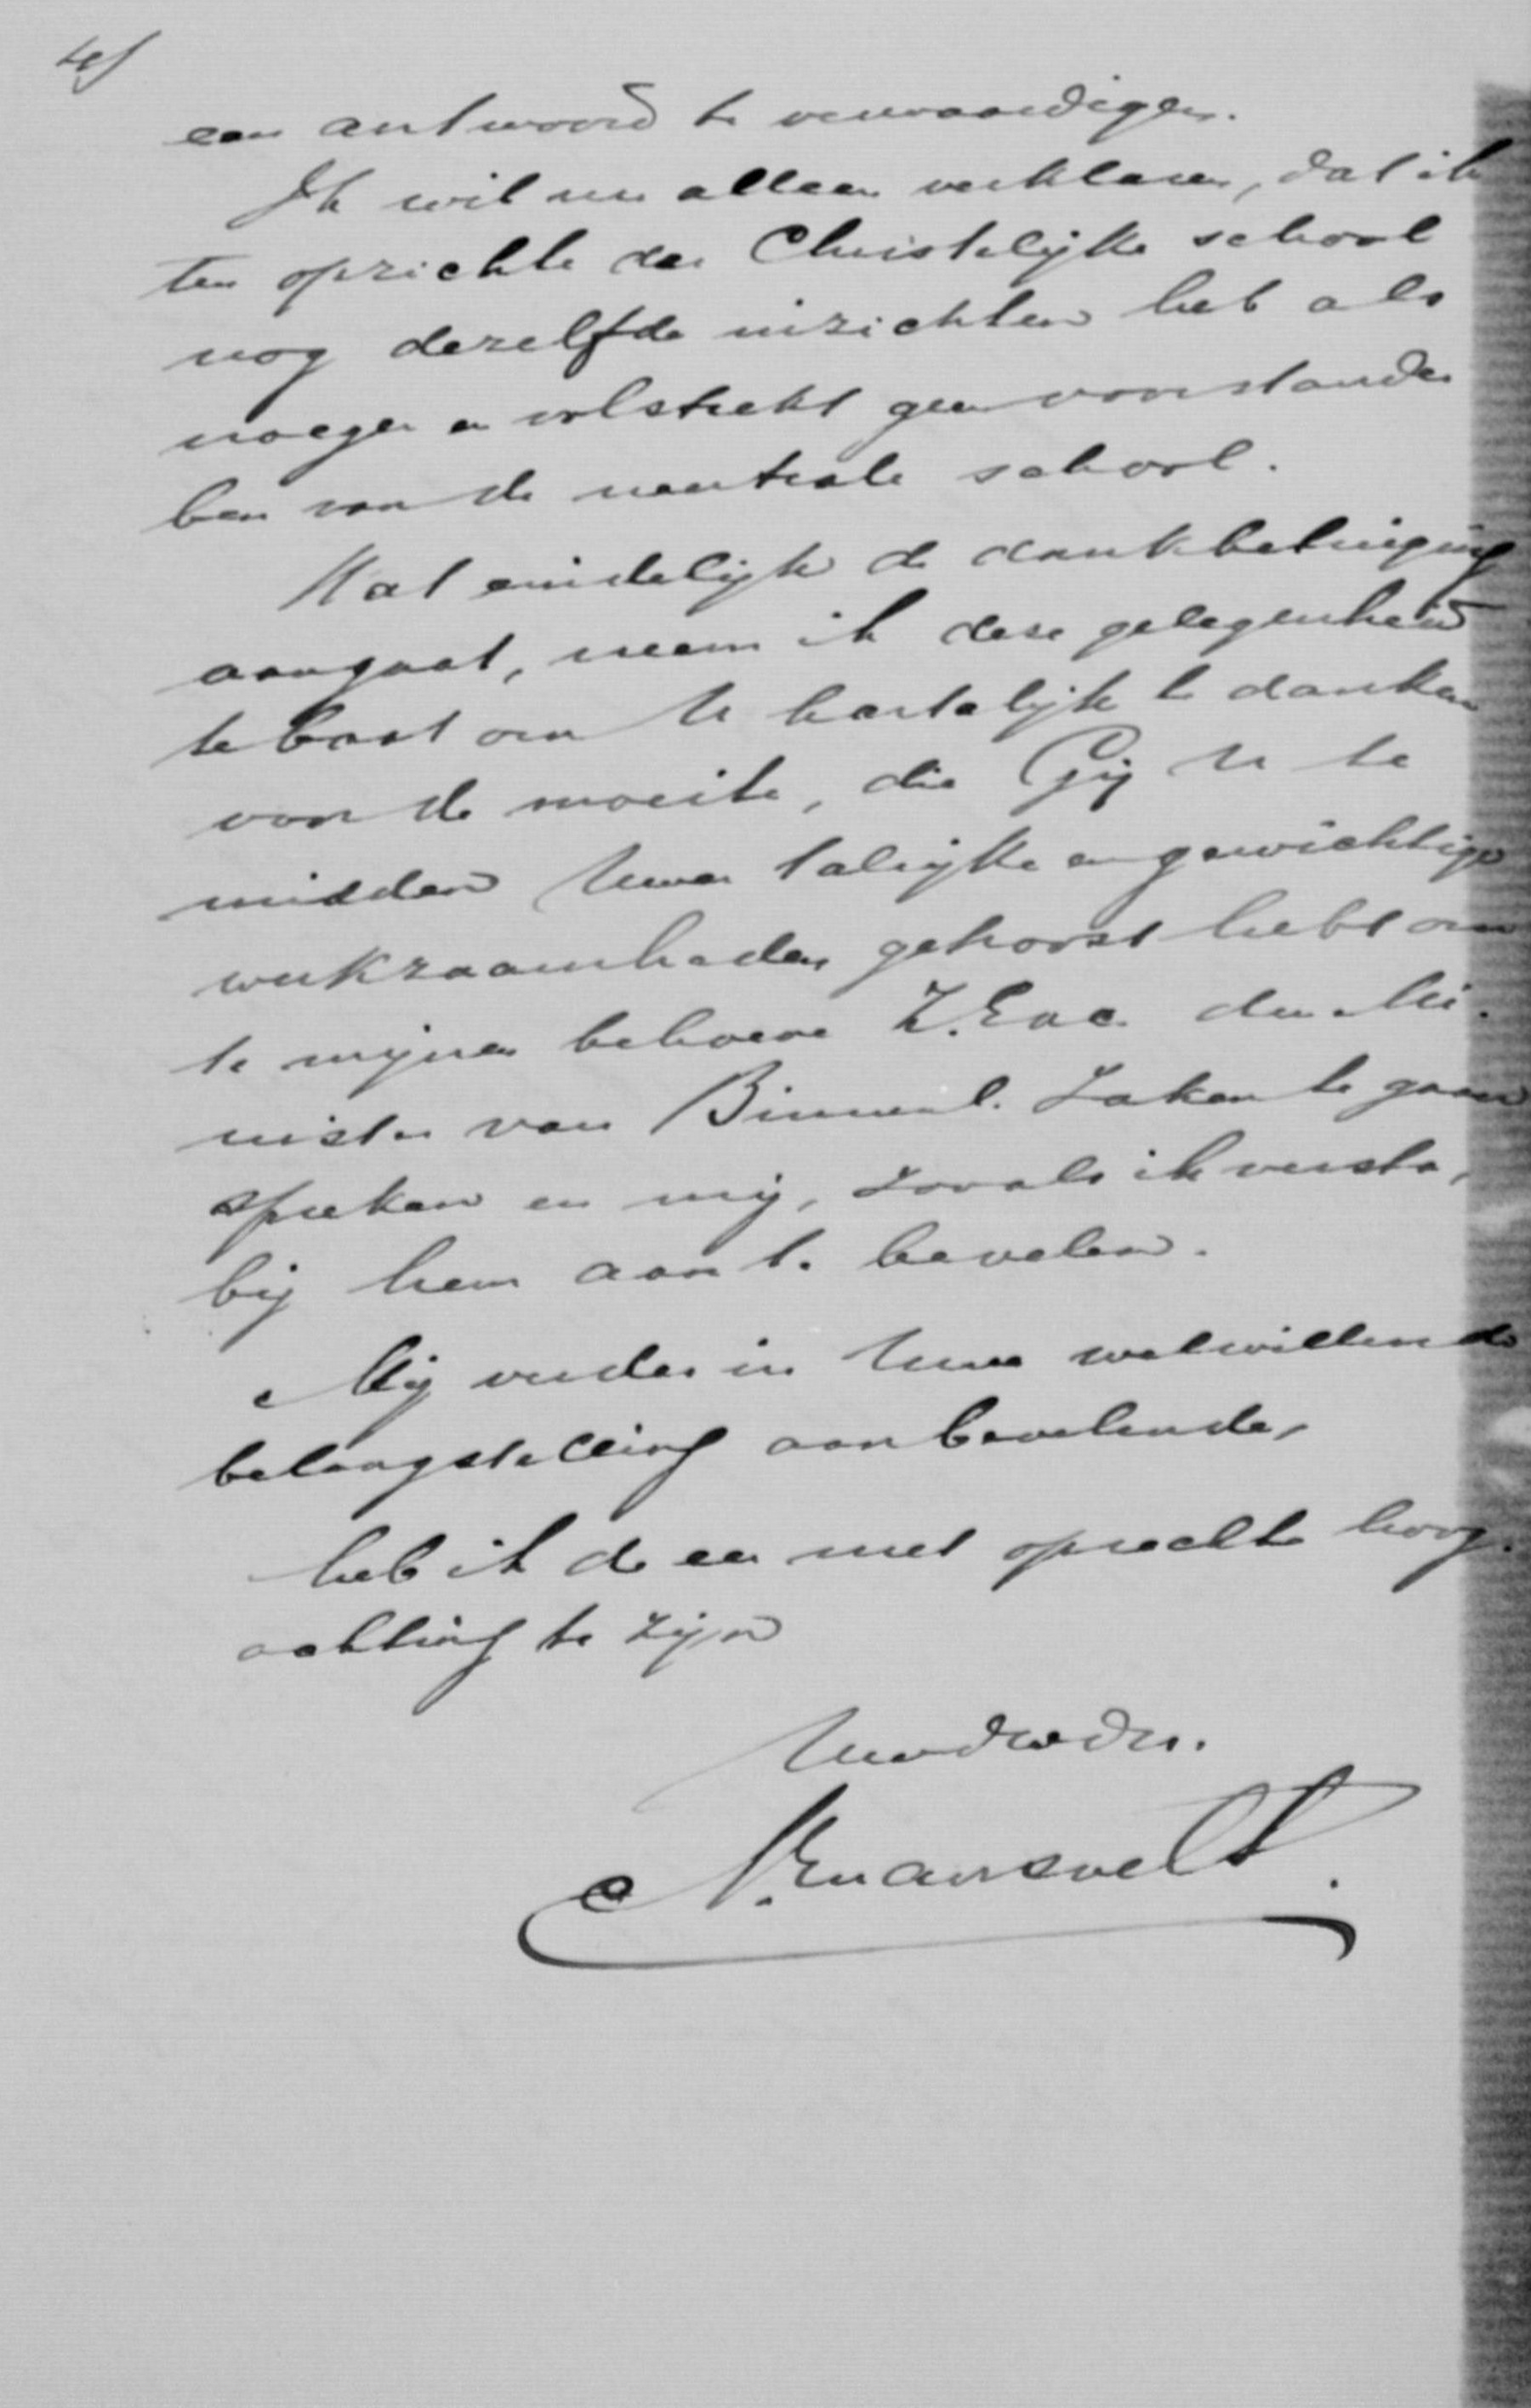 4/
een antwoord te verwaardigen.
Ik wil nu alleen verklaren, dat ik
ten opzichte der Christelijke school
nog dezelfde inzichten heb als
vroeger en volstrekt geen voorstander
ben van de neutrale school.
Wat eindelijk de dankbetuiging
aangaat, neem ik deze gelegenheid
te baat om U hartelijk te danken
voor de moeite, die Gij U te
midden Uwer talrijke en gewichtige
werkzaamheden getroost hebt om
te mijnen behoeve Z. Exc. den Mi-
nister van Binnenl. Zaken te gaan
spreken en mij, zooals ik versta,
bij hem aan te bevelen.
Mij verder in Uwe welwillende
belangstelling aanbevelende,
heb ik de eer met oprechte hoog-
achting te zijn
Uwdwdr.
N. Mansvelt.